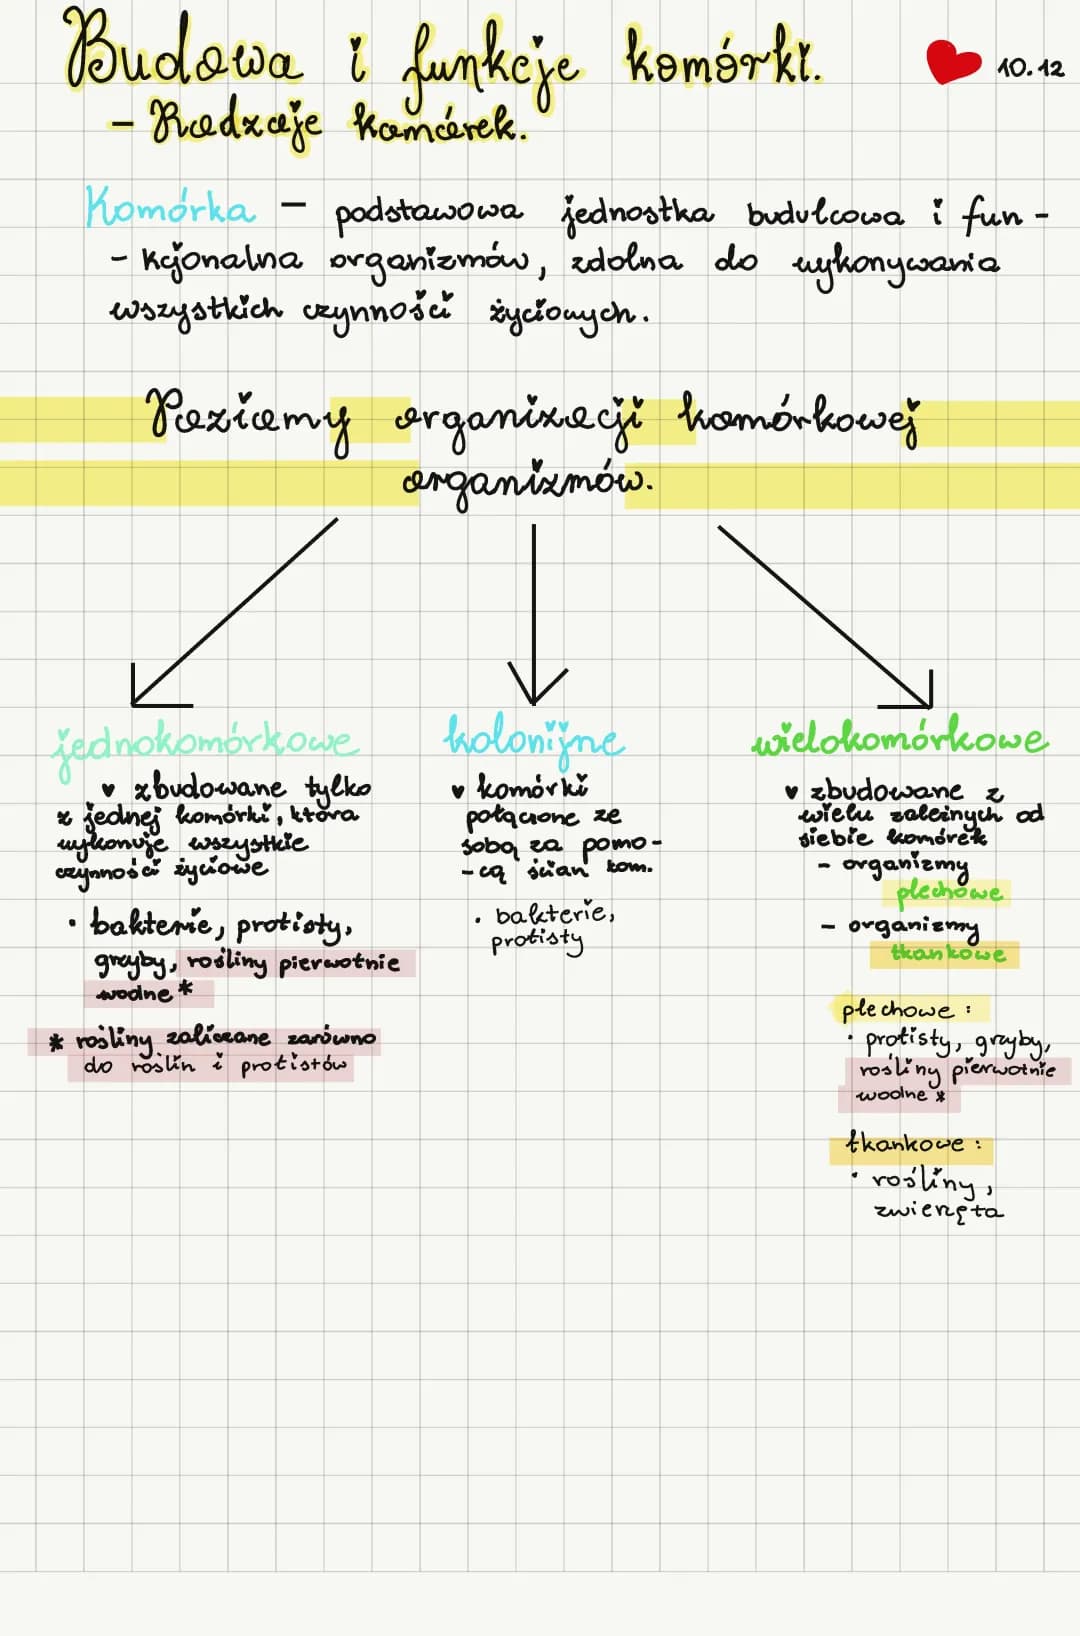 Budowa i funkcje komórki.
10.12
- Rodzaje komórek.
Komórka - podstawowa jednostka budulcowa i fun-
- kcjonalna organizmów, zdolna do wykonywania
wszystkich czynności życiowych.
Poziomy organizacji komórkowej
organizmów.
jednokomórkowe
♥ zbudowane tylko
z jednej komórki, która
wykonuje wszystkie
czynności życiowe
• bakterie, protisty,
grzyby, rośliny pierwotnie
wodne *
* rośliny zaliczane zarówno
do roślin i protistów
kolonijne
♥ komórki
połączone ze
sobą za pomo-
- cą ścian kom.
• bakterie,
protisty
wielokomórkowe
♥ zbudowane z
wielu zależnych od
siebie komórek
- organizmy
plechowe
- organizmy
tkankowe
plechowe :
• protisty, grzyby,
rośliny pierwotnie
wodne *
tkankowe :
• rośliny,
zwierzęta